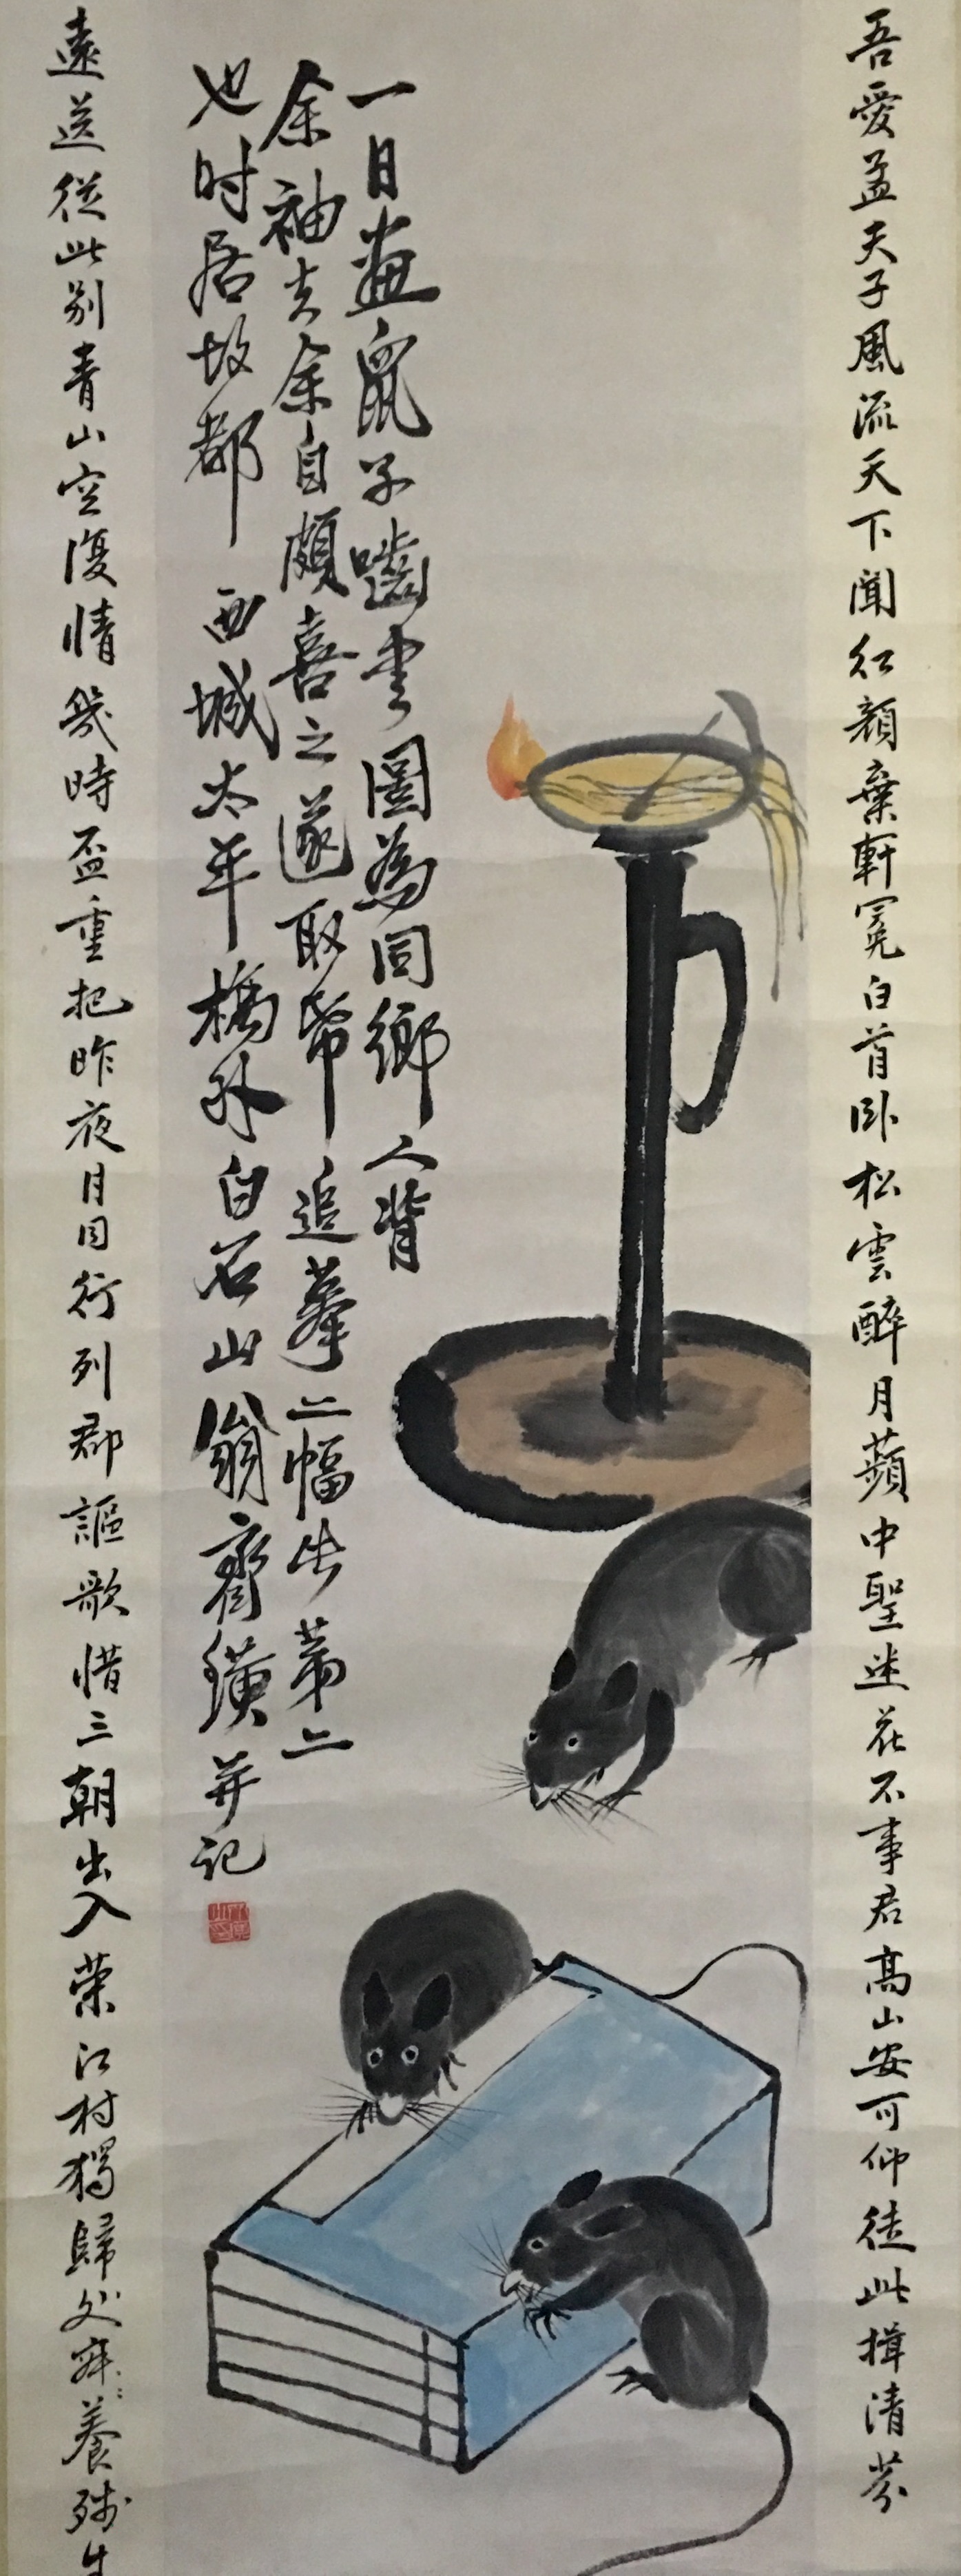 吾愛孟夫子風流天下聞紅顏棄軒冕白首臥松雲醉月蘋中聖迷花不事君高山安可仰徒此揖清芬
一日畫鼠子嚙書圖為同鄉人背
余袖去余自頗喜之遂取帋追摹二幅此第二
也时居故都西城太平橋外白石山翁齊璜并記
遠送從此別青山空復情幾時盃重把昨夜月同行列郡謳歌惜三朝出入榮江村獨歸处寂：養殘生